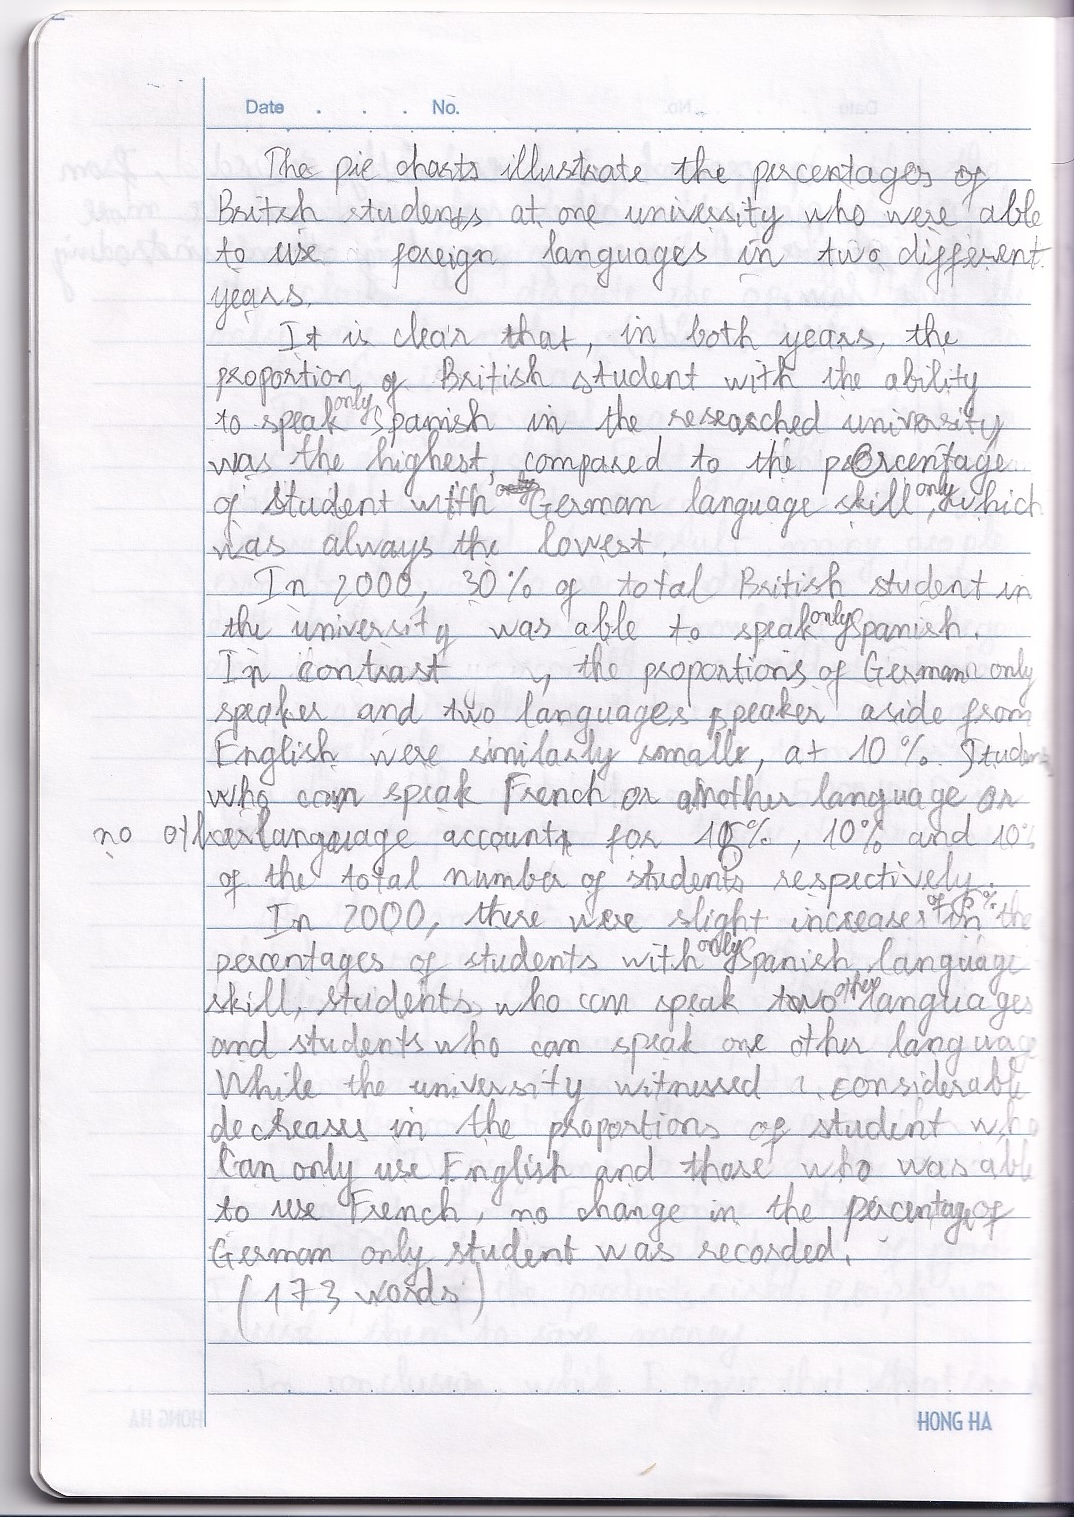 Date . . . No.
The pie charts illustrate the percentages of
British students at one university who were able
to use foreign languages in two different
years.
It is clear that, in both years, the
proportion of British student with the ability
to speak only Spanish in the researched university
was the highest, compared to the percentage
of student with German language skill only, which
was always the lowest.
In 2000, 30% of total British student in
the university was able to speak only Spanish.
In contrast, the proportions of German only
speaker and two languages speaker aside from
English were similarly smaller, at 10%. Students
who can speak French or another language or
no other language account for 15%, 10% and 10%
of the total number of students respectively.
In 2000, there were slight increases of 5% in the
percentages of students with only Spanish language
skill, students who can speak two other languages
and students who can speak one other language
While the university witnessed a considerable
decreases in the proportions of student who
can only use English and those who was able
to use French, no change in the percentage of
German only student was recorded.
(173 words)
HONG HA